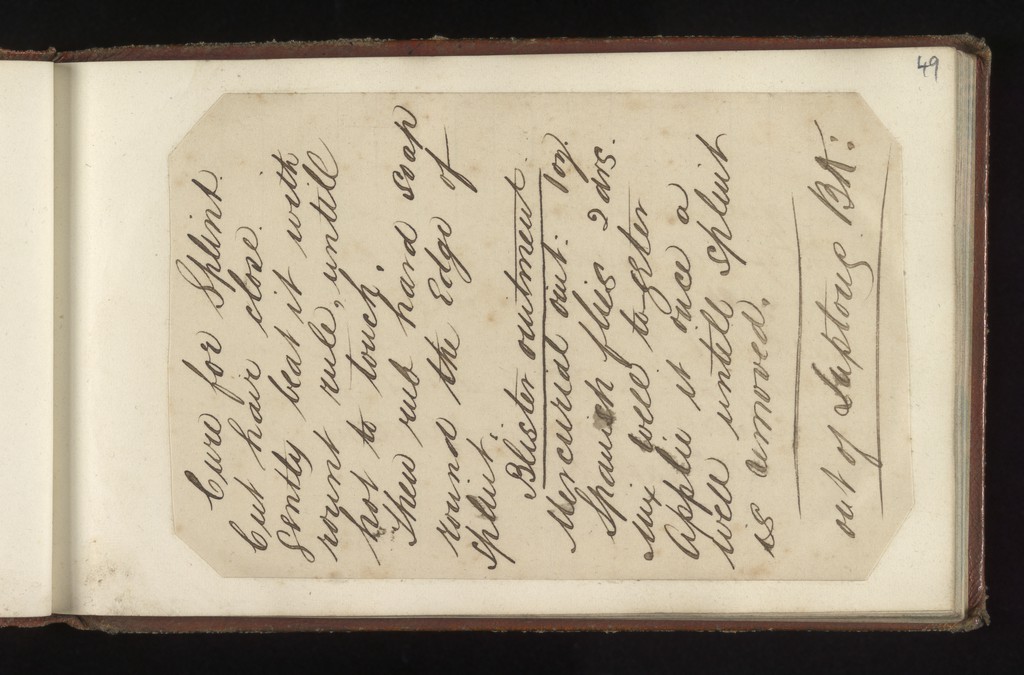 49
Cure for Splint.
Cut hair close.
Gently beat it with
round rule, untill
hot to touch,
Then rub hard soap
round the Edge of
splint.
Blister ointment.
Mercurial oint: 1oz.
Spanish flies 2 drs.
mix well together
Applie it once a
well untill splint
is removed.
out of Suptons BK: